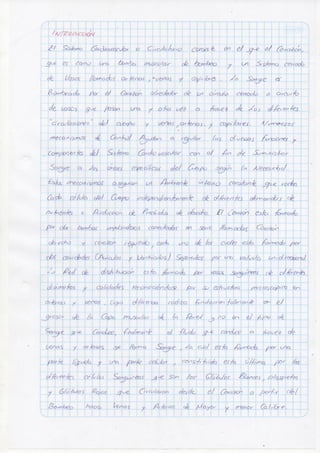 INTRODUCCIÓN
El Sistema Cardiovascular o Circulatorio consiste en el que el Corazón,
que es como una bomba muscular de bombeo y un Sistema cerrado
de Vasos llamados arterias, venas y capilares. La Sangre es
Bombeada por el Corazón alrededor de un circulo cerrado o circuito
de vasos que pasan una y otra vez a traves de las diferentes
"circulaciones" del cuerpo y venas, arterias y capilares. Numerosos
mecanismos de Control Ayudan a regular las diversas funciones y
componentes del Sistema Cardiovascular con el fin de Suministrar
Sangre a las areas especificas del Cuerpo según la Necesidad.
Estos mecanismos aseguran un Ambiente interno constante que rodea
Cada célula del Cuerpo independientemente de diferentes demandas de
nutrientes o Producción de Productos de desecho. El Corazón esta formado
por dos bombas en llamadas Corazón
derecho y corazón izquierdo, cada uno de los cuales esta formado por
dos cavidades (Aurícula y Ventriculo) Separadas por una valvula unidireccional
La Red de distribución esta formada por vasos sanguíneos de diferentes
diametros y calidades por su estructura microscopica en
arterias y venas. Cuya diferencia radica fundamentalmente en el
grosor de la Capa muscular de la Pared y no en el tipo de
Sangre que Conduce, finalmente el fluido que conduce a traves de
venas y arterias se llama Sangre, la cual esta formada por una
parte liquida y una parte celular constituida esta última por las
diferentes células Sanguíneas que son los Glóbulos Blancos, plaquetas
y Glóbulos Rojos que Circularan desde el Corazón a partir del
Bombeo hacia Venas y Arterias de Mayor y menor Calibre.